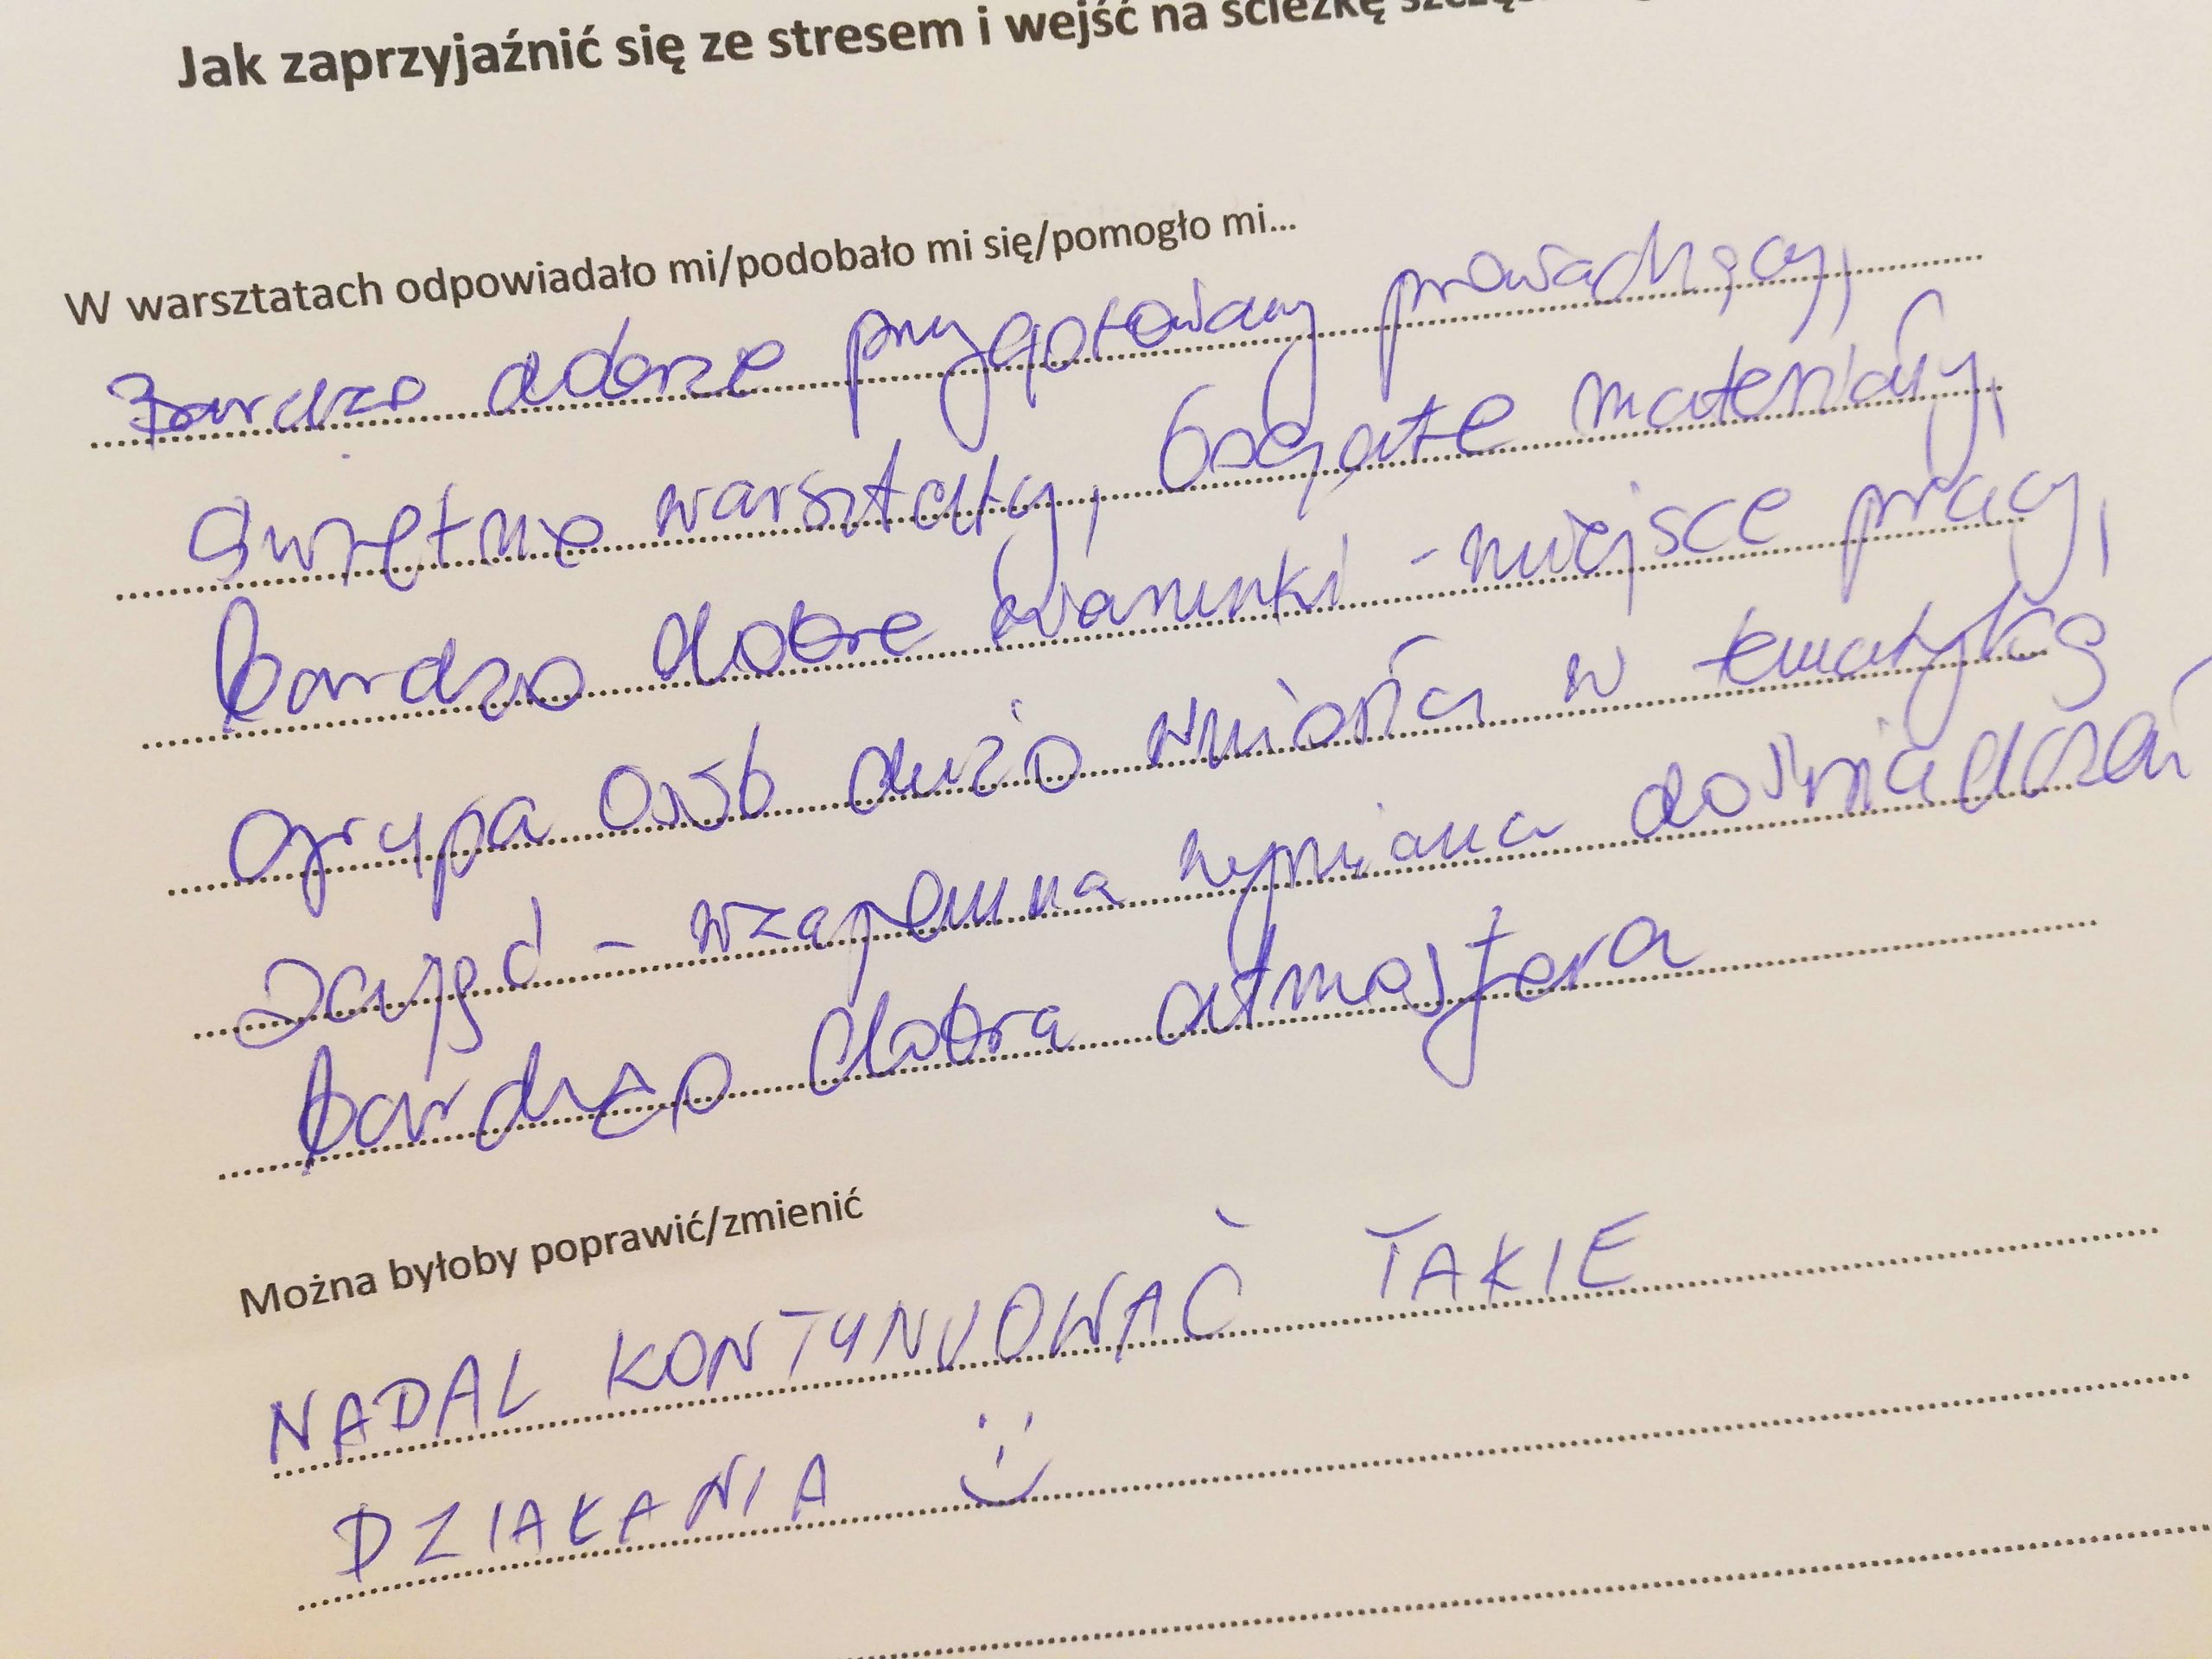 Jak zaprzyjaźnić się ze stresem i wejść na ścieżkę
W warsztatach odpowiadało mi/podobało mi się/pomogło mi...
Bardzo dobrze przygotowany prowadzący,
świetne warsztaty, bogate materiały,
bardzo dobre warunki - miejsce pracy,
grupa osób dużo wniosła w tematykę
zajęć - wzajemna wymiana doświadczeń
bardzo dobra atmosfera
Można byłoby poprawić/zmienić
NADAL KONTYNUOWAĆ TAKIE
DZIAŁANIA :)